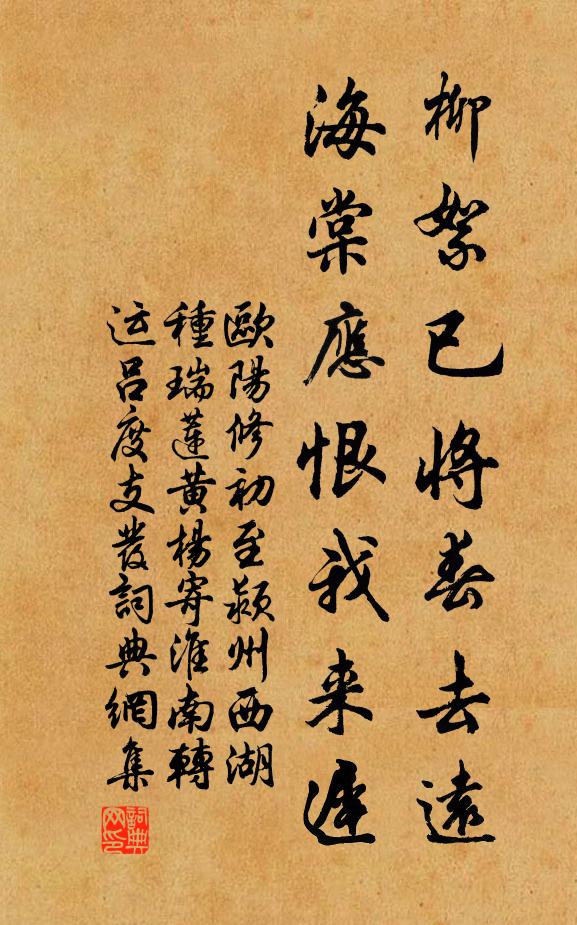 柳絮已將春去遠
海棠應恨我来遲
歐陽修初至潁州西湖
種瑞蓮黃楊寄淮南轉
运呂度支發詞典網集
詞典网印